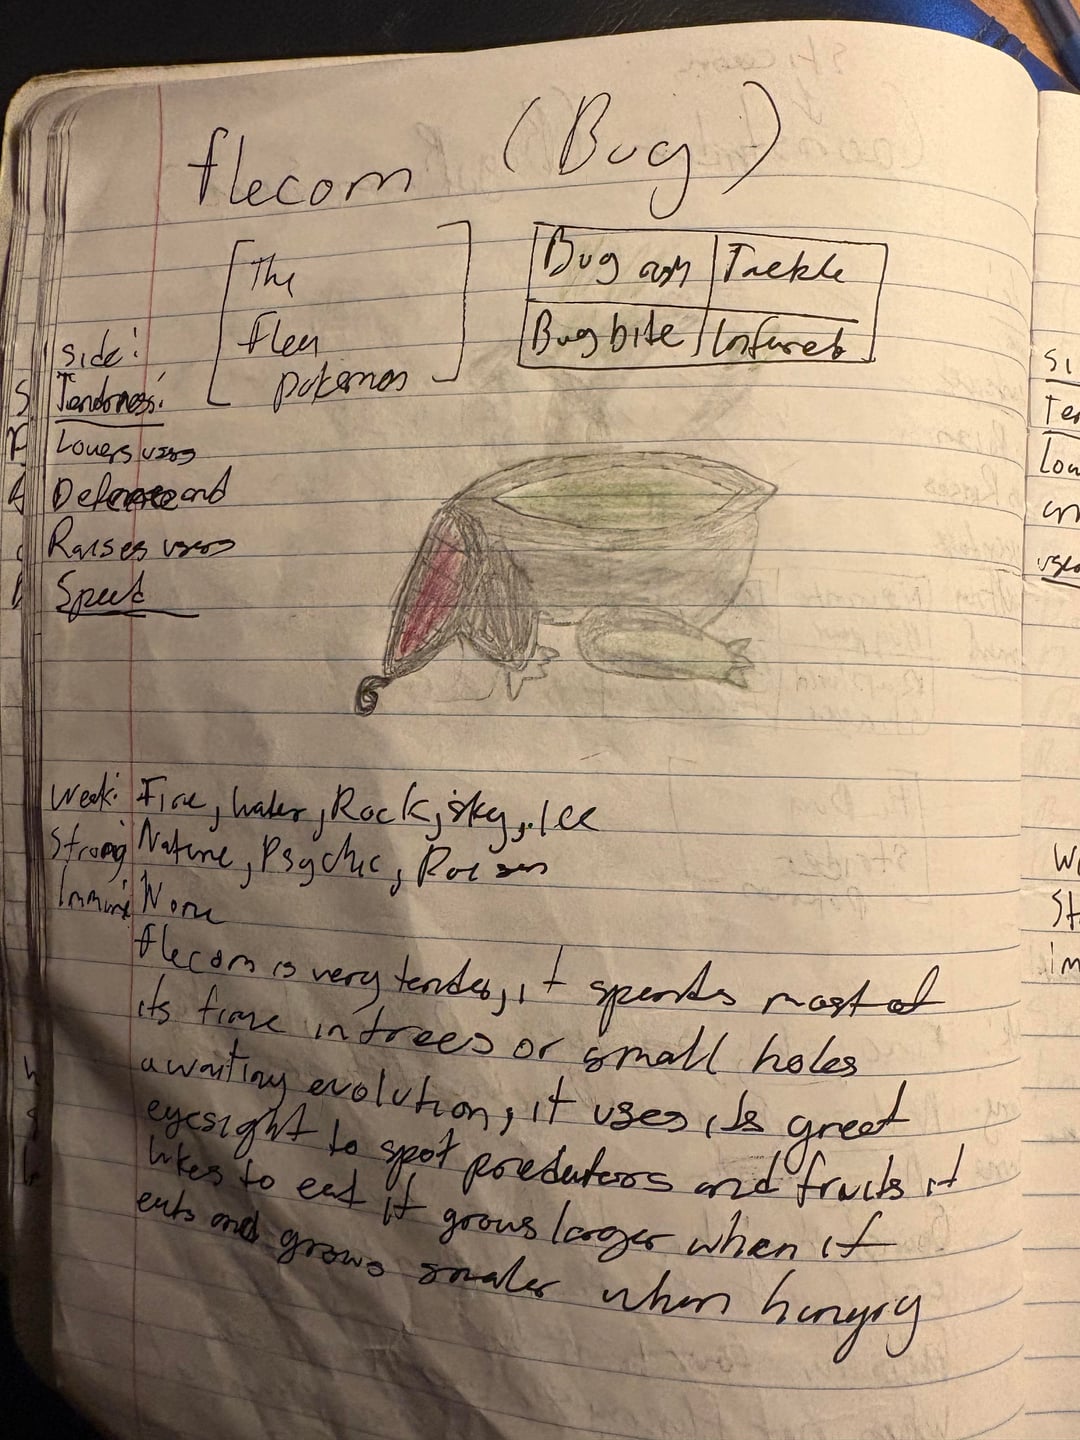 flecom (Bug)
[The
flea
pokemon]
Bug Tackle
Bugbite Infureb
side:
Tenderness:
Lowers users
Defense and
Raises users
Speed
Weak: Fire, water, Rock, sky, Ice
Strong Nature, Psychic,
Immune None
flecom is very tender, it spends most of
its time in trees or small holes
awaiting evolution, it uses its great
eyesight to spot predators and fruits it
likes to eat it grows larger when it
eats and grows smaler when hungry